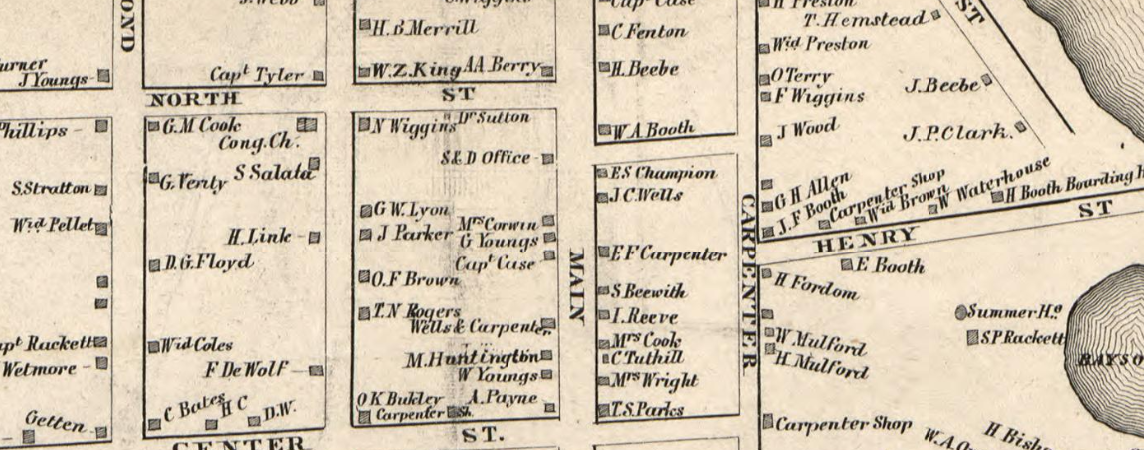 H.B.Merrill
W.Z.King
AA.Berry
Capt Case
C Fenton
H.Beebe
W.A.Booth
H Preston
T.Hemstead
ST
Wid Preston
O Terry
F Wiggins
J.Beebe
J Wood
J.P.Clark.
G H Allen
J.F Booth
Carpenter Shop
Wid Brown
W Waterhouse
H Booth Boarding
HENRY ST
J Youngs
Capt Tyler
NORTH ST
Phillips
S.Stratton
Wid Pellet
Rackett
Wetmore
Getten
G.M Cook
Cong.Ch.
S Salata
G.Verity
H.Link
D.G.Floyd
Wid Coles
F De Wolf
C Bates
H C
D.W.
CENTER ST.
N Wiggins
Dr Sutton
S & D Office
G W.Lyon
J Parker
Mrs Corwin
G Youngs
Capt Case
O.F Brown
T.N Rogers
Wells & Carpenter
M.Huntington
W Youngs
O K Bukley
A.Payne
Carpenter Sh.
MAIN
E S Champion
J C.Wells
E F Carpenter
S Beewith
I.Reeve
Mrs Cook
C Tuthill
Mrs Wright
T.S.Parks
CARPENTER
E Booth
H Fordom
W.Mulford
H Mulford
Summer Ho
S.P.Rackett
Carpenter Shop